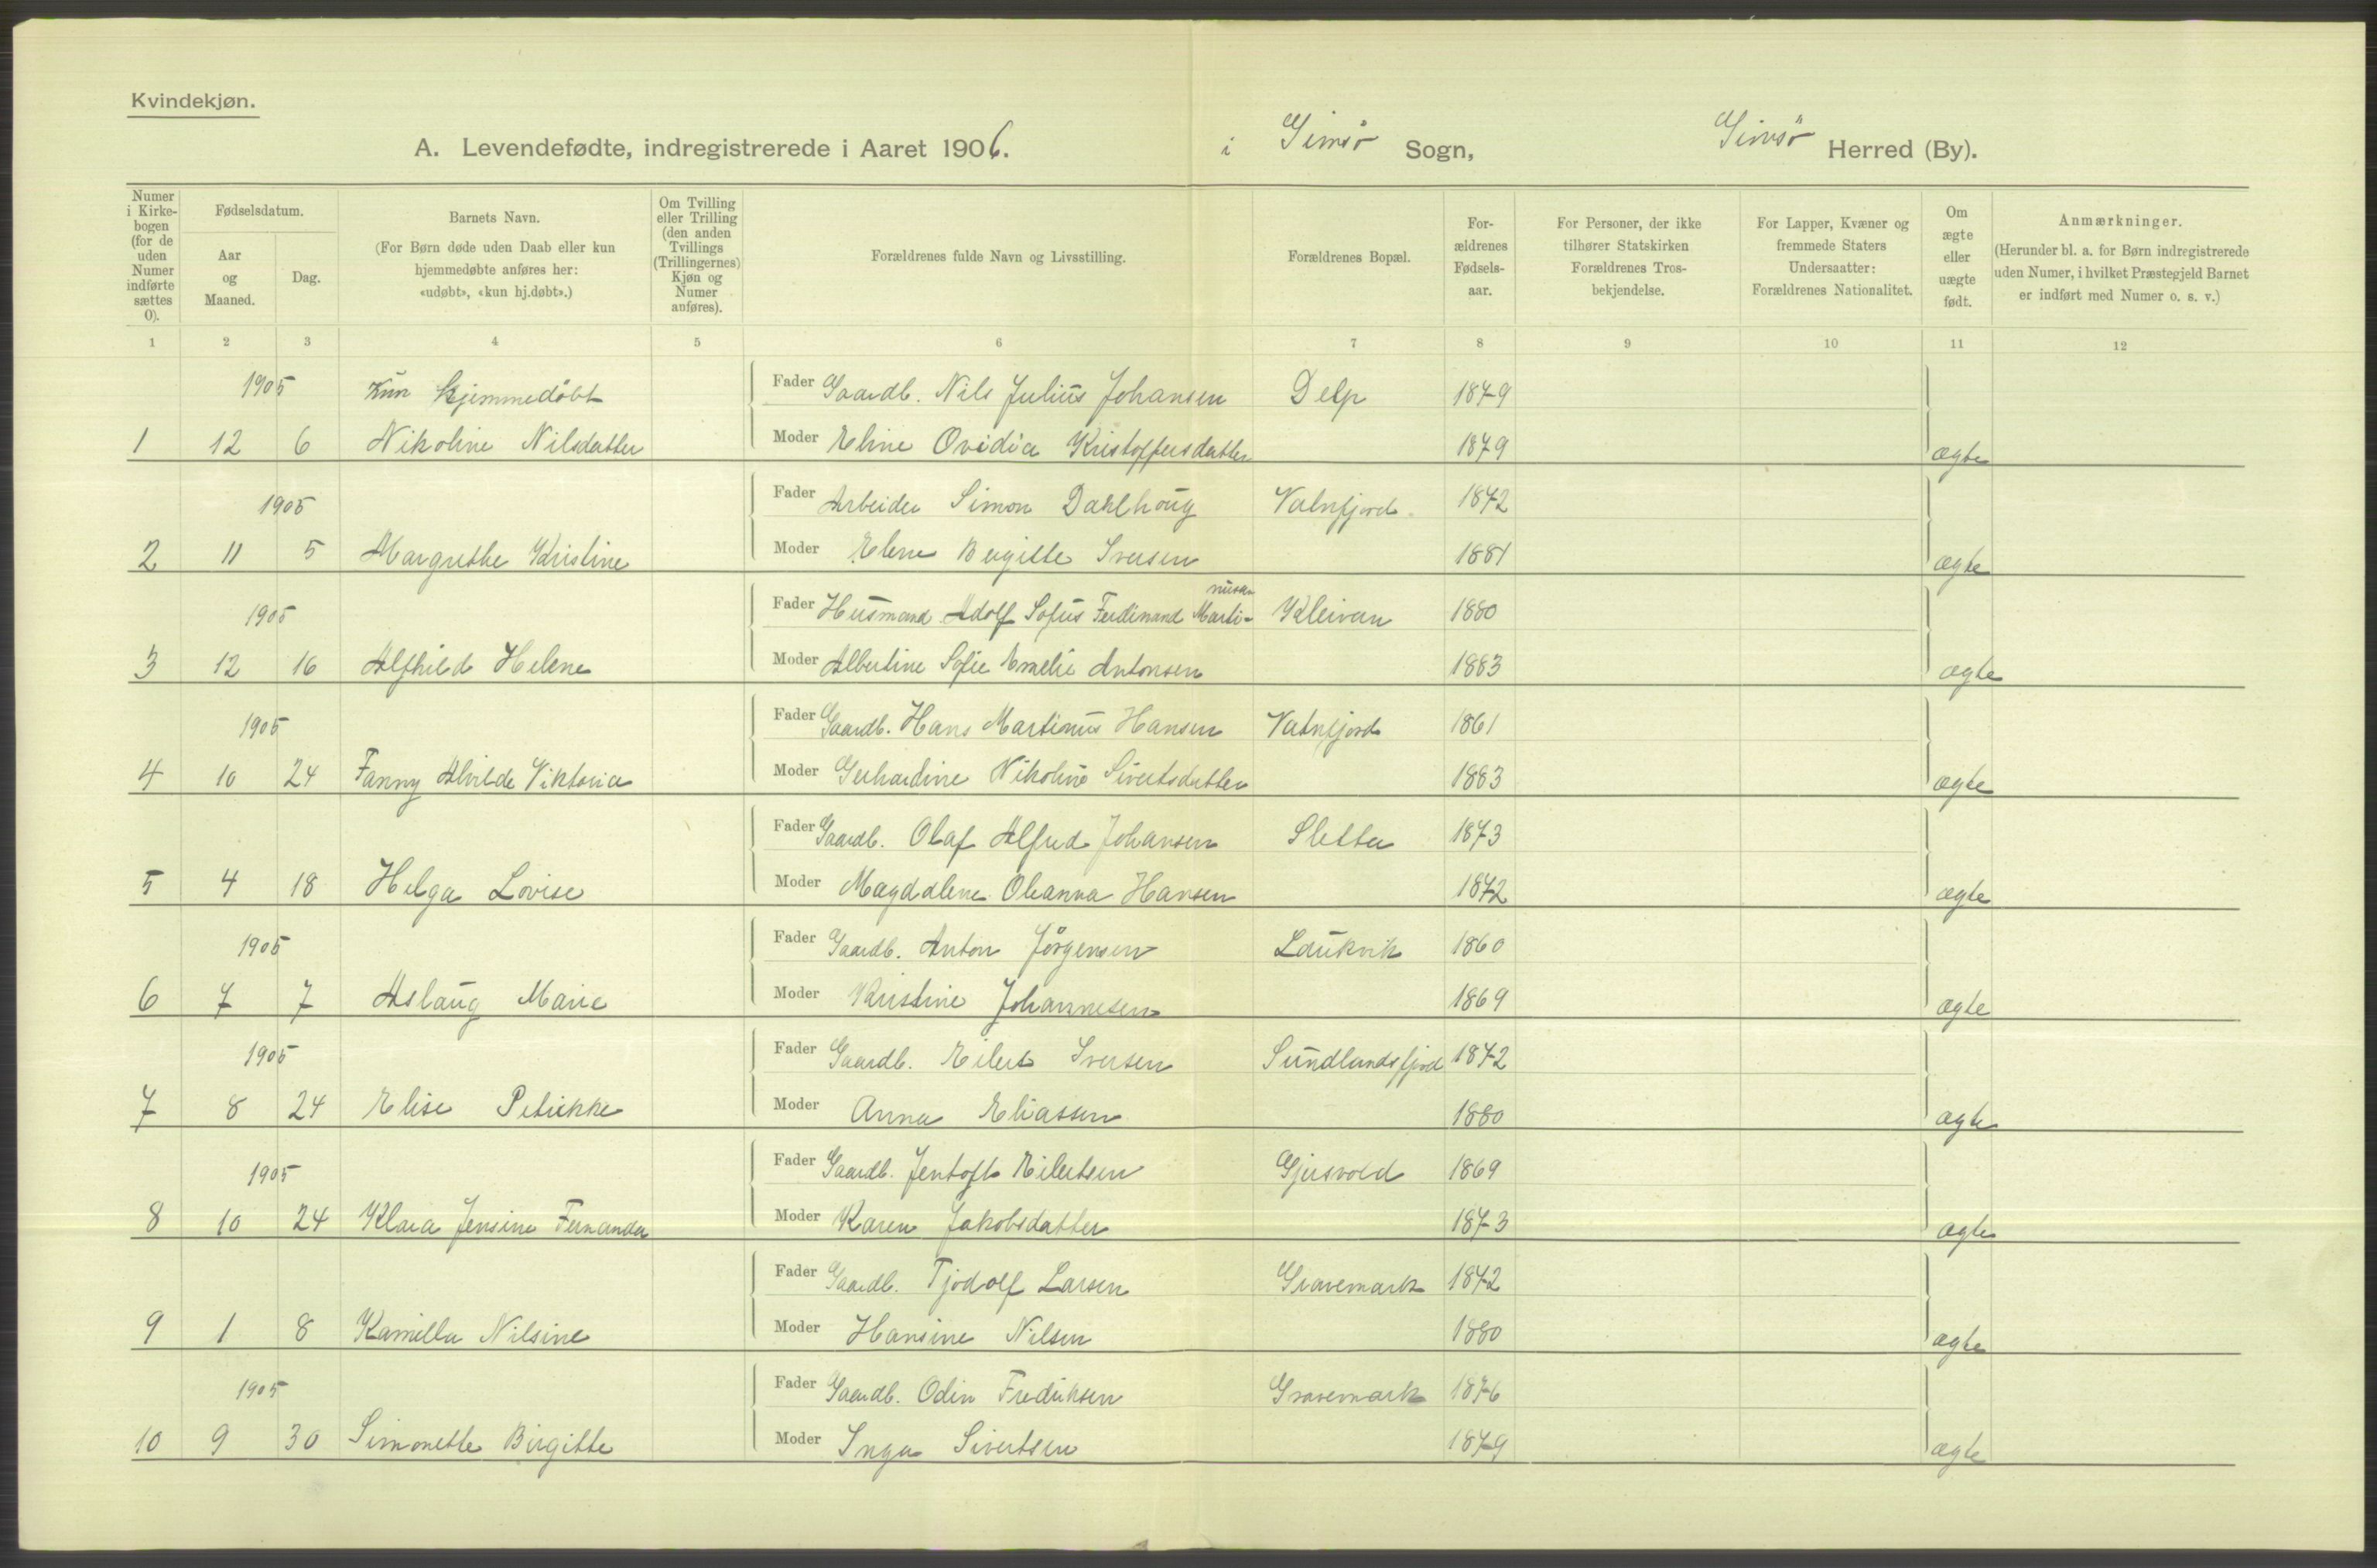 Kvindekjøn.
A. Levendefødte, indregistrerede i Aaret 1906. i Gimsø Sogn, Gimsø Herred (By).
Numer i Kirkebogen (for de uden Numer indførte sættes 0).
Fødselsdatum.
Aar og Maaned.
Dag.
Barnets Navn.
(For Børn døde uden Daab eller kun hjemmedøbte anføres her: «udøbt», «kun hj.døbt».)
Om Tvilling eller Trilling (den anden Tvillings (Trillingernes) Kjøn og Numer anføres).
Forældrenes fulde Navn og Livsstilling.
Forældrenes Bopæl.
Forældrenes Fødselsaar.
For Personer, der ikke tilhører Statskirken Forældrenes Trosbekjendelse.
For Lapper, Kvæner og fremmede Staters Undersaatter: Forældrenes Nationalitet.
Om ægte eller uægte født.
Anmærkninger.
(Herunder bl. a. for Børn indregistrerede uden Numer, i hvilket Præstegjeld Barnet er indført med Numer o. s. v.)
1 2 3 4 5 6 7 8 9 10 11 12
1905 Kun hjemmedøbt Fader Gaardb. Nils Julius Johansen Delp 1879
1 12 6 Nikoline Nilsdatter Moder Eline Ovidia Kristoffersdatter 1879 ægte
1905 Fader Arbeider Simon Dahlhaug Vatnfjord 1872
2 11 5 Margrethe Kristine Moder Elene Bergitte Iversen 1881 ægte
1905 Fader Husmand Adolf Sofus Ferdinand Martinusen Kleivan 1880
3 12 16 Alfhild Helene Moder Albertine Sofie Emelie Antonsen 1883 ægte
1905 Fader Gaardb. Hans Martinus Hansen Vatnfjord 1861
4 10 24 Fanny Alvilde Viktoria Moder Gerhardine Nikoline Sivertsdatter 1883 ægte
Fader Gaardb. Olaf Alfred Johansen Sletta 1873
5 4 18 Helga Lovise Moder Magdalene Oleanna Hansen 1872 ægte
1905 Fader Gaardb. Anton Jørgensen Laukvik 1860
6 7 7 Aslaug Marie Moder Kristine Johannesen 1869 ægte
1905 Fader Gaardb. Eilert Iversen Sundlandsfjord 1872
7 8 24 Elise Petrikke Moder Anna Eliassen 1880 ægte
1905 Fader Gaardb. Jentoft Eilertsen Gjersvold 1869
8 10 24 Klara Jensine Fernanda Moder Karen Jakobsdatter 1873 ægte
Fader Gaardb. Tjodolf Larsen Gravermark 1872
9 1 8 Kamilla Nilsine Moder Hansine Nilsen 1880 ægte
1905 Fader Gaardb. Odin Fredriksen Gravermark 1876
10 9 30 Simonette Birgitte Moder Inga Sivertsen 1879 ægte